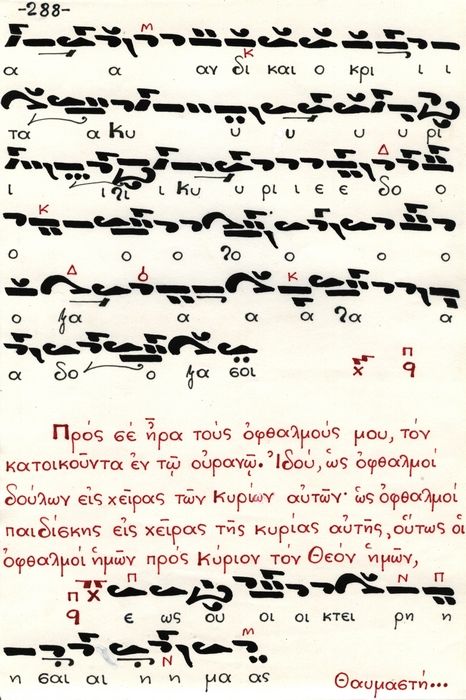 -288-
Μ Κ
α α αν δι και ο κρι ι ι
τα α Κυ υ υ υ υ ρι
Δ
ι ι ι Κυ υ ρι ε ε δο ο
Κ
ο ο ο ο ο ο
Δ Κ
ο ξα α α α α
α δο ο ξα σοι
π
χ q
Πρός σέ ἦρα τούς ὀφθαλμούς μου, τόν
κατοικοῦντα ἐν τῷ οὐρανῷ. Ἰδού, ὡς ὀφθαλμοί
δούλων εἰς χεῖρας τῶν κυρίων αὐτῶν· ὡς ὀφθαλμοί
παιδίσκης εἰς χεῖρας τῆς κυρίας αὐτῆς, οὕτως οἱ
ὀφθαλμοί ἡμῶν πρός Κύριον τόν Θεόν ἡμῶν,
π χ π Ν π
q ε ως ου οι οι κτει ρη η
Ν Μ
η σαι αι η η μα ας
Θαυμαστή...